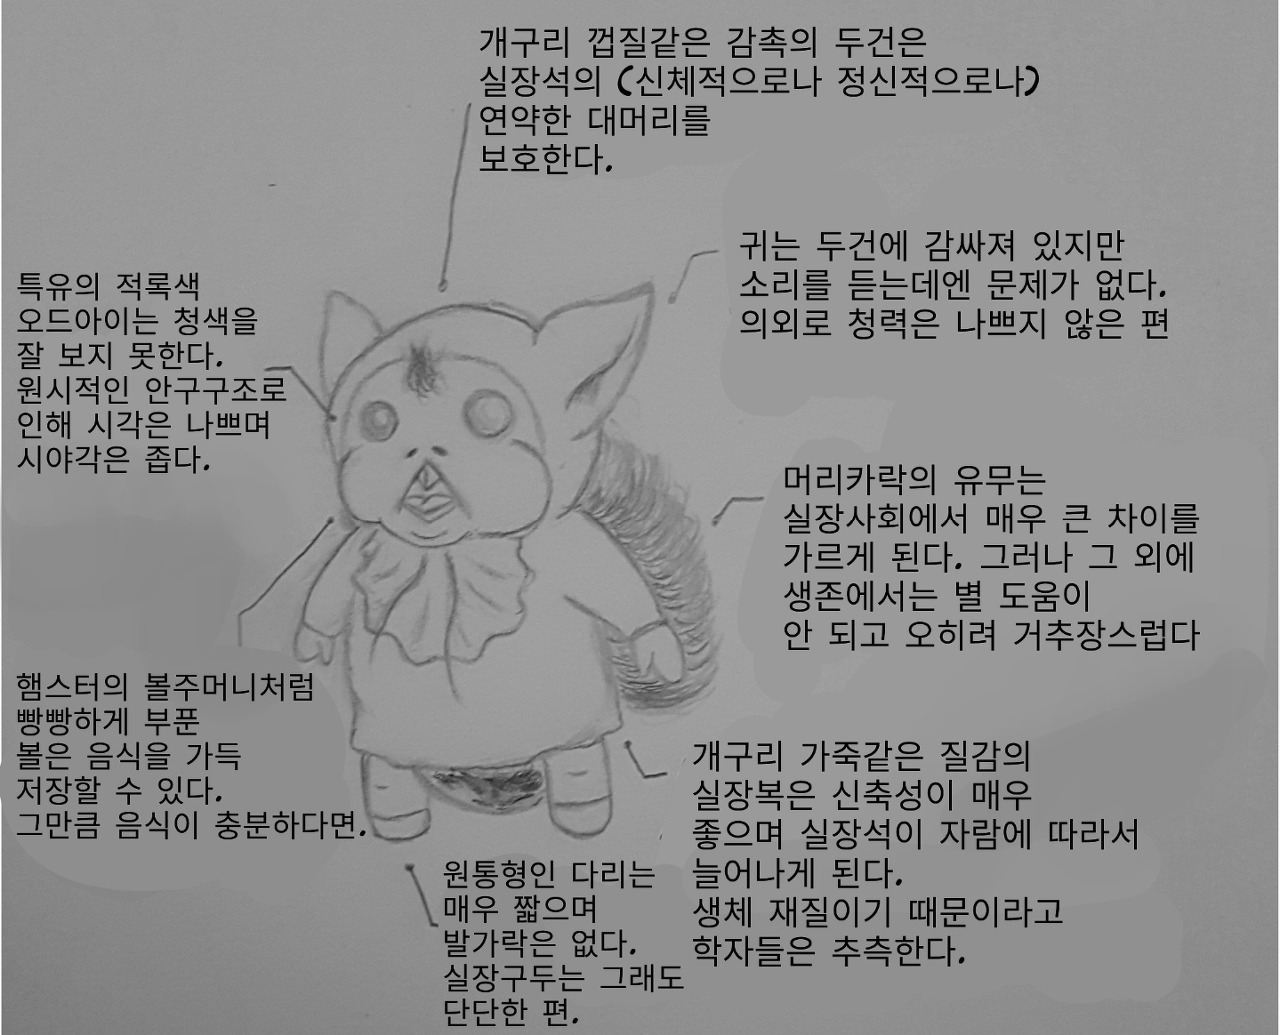 개구리 껍질같은 감촉의 두건은
실장석의 (신체적으로나 정신적으로나)
연약한 대머리를
보호한다.
귀는 두건에 감싸져 있지만
소리를 듣는데엔 문제가 없다.
의외로 청력은 나쁘지 않은 편
특유의 적록색
오드아이는 청색을
잘 보지 못한다.
원시적인 안구구조로
인해 시각은 나쁘며
시야각은 좁다.
머리카락의 유무는
실장사회에서 매우 큰 차이를
가르게 된다. 그러나 그 외에
생존에서는 별 도움이
안 되고 오히려 거추장스럽다
햄스터의 볼주머니처럼
빵빵하게 부푼
볼은 음식을 가득
저장할 수 있다.
그만큼 음식이 충분하다면.
개구리 가죽같은 질감의
실장복은 신축성이 매우
좋으며 실장석이 자람에 따라서
늘어나게 된다.
생체 재질이기 때문이라고
학자들은 추측한다.
원통형인 다리는
매우 짧으며
발가락은 없다.
실장구두는 그래도
단단한 편.